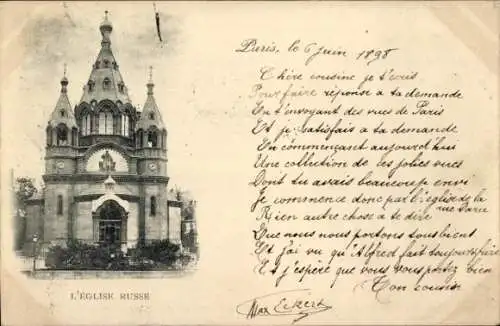 Paris, le 6 juin 1898
Chère cousine je t'écris
Pour faire réponse a ta demande
En t'envoyant des vues de Paris
Et je satisfais a ta demande
En commençant aujourd'hui
Une collection de les jolies vues
Dont tu avais beaucoup envi
Je commence donc par l'église de la
rue Daru
Rien autre chose a te dire
Que nous nous portons tous bient
Et j'ai vu qu'Alfred fait toujours
Et j'espère que vous vous portez bien
Ton cousin
Max Eckert
L'ÉGLISE RUSSE